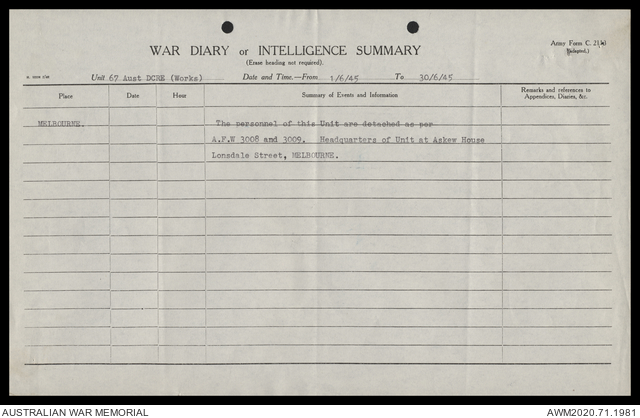 Army Form C. 2118
(Adapted.)
WAR DIARY or INTELLIGENCE SUMMARY
(Erase heading not required).
Unit 67 Aust DCRE (Works) Date and Time.—From 1/6/45 To 30/6/45
Place Date Hour Summary of Events and Information Remarks and references to
Appendices, Diaries, &c.
MELBOURNE. The personnel of this Unit are detached as per
A.F.W 3008 and 3009. Headquarters of Unit at Askew House
Lonsdale Street, MELBOURNE.
AUSTRALIAN WAR MEMORIAL AWM2020.71.1981